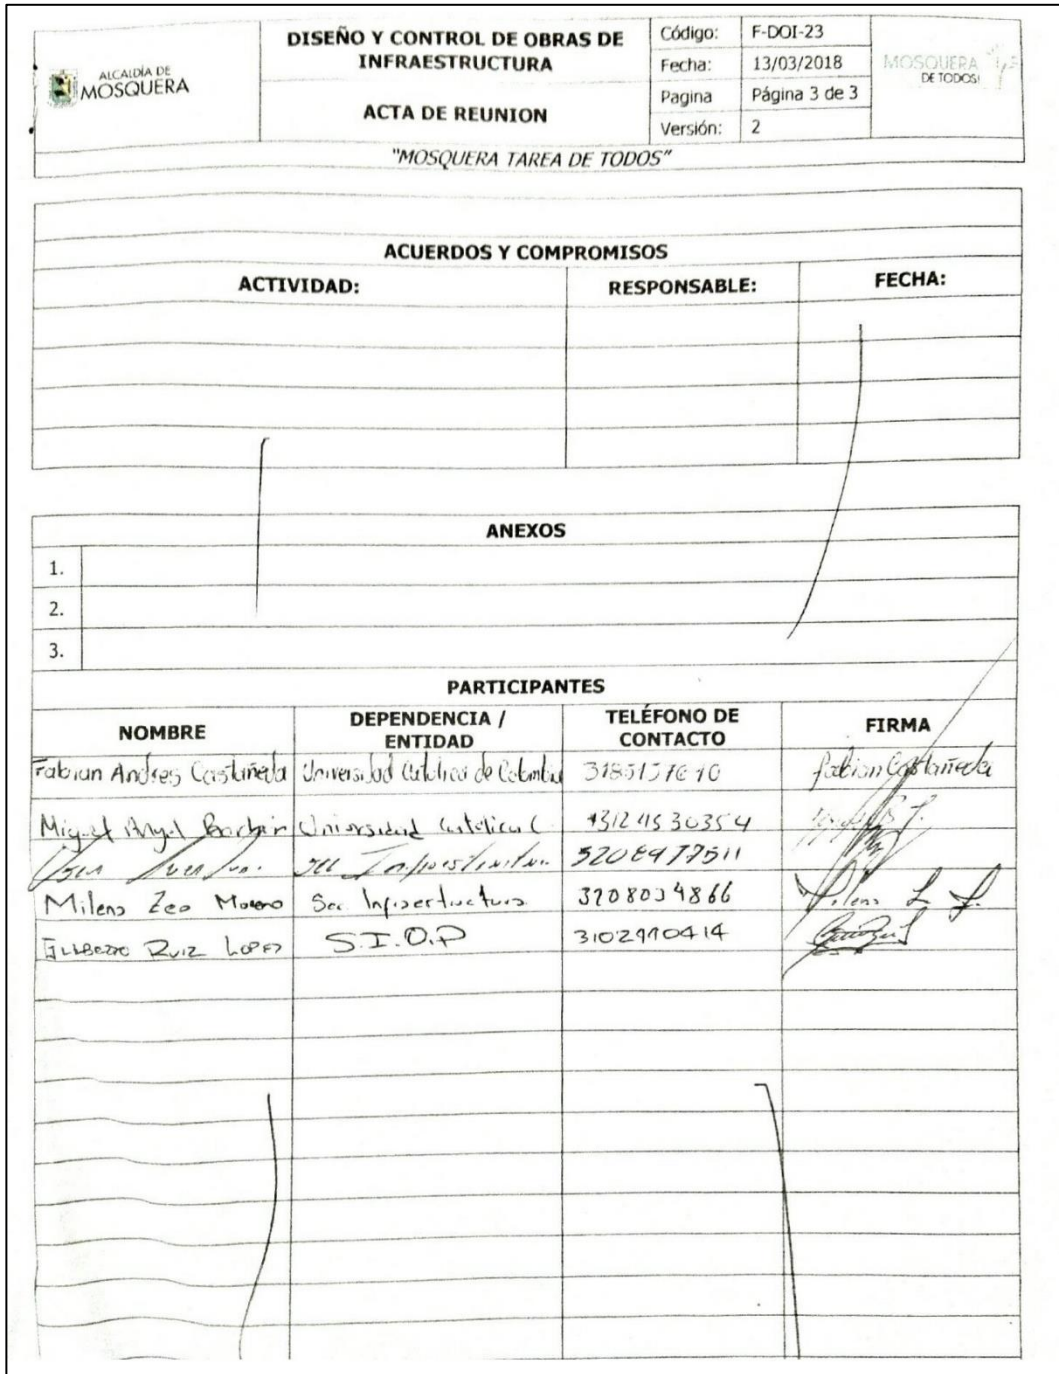 ALCALDÍA DE
MOSQUERA
DISEÑO Y CONTROL DE OBRAS DE
INFRAESTRUCTURA
ACTA DE REUNION
Código: F-DOI-23
Fecha: 13/03/2018
Pagina Página 3 de 3
Versión: 2
MOSQUERA
DE TODOS!
"MOSQUERA TAREA DE TODOS"
ACUERDOS Y COMPROMISOS
ACTIVIDAD: RESPONSABLE: FECHA:
ANEXOS
1.
2.
3.
PARTICIPANTES
NOMBRE DEPENDENCIA / ENTIDAD TELÉFONO DE CONTACTO FIRMA
Fabian Andres Castañeda Universidad Catolica de Colombia Fabian Castañeda
Miguel Angel Universidad Catolica C
3208977511
Milena Zea Moreno Sec 3208034866 Milena
Ruiz Lopez S.I.O.P 3102910414